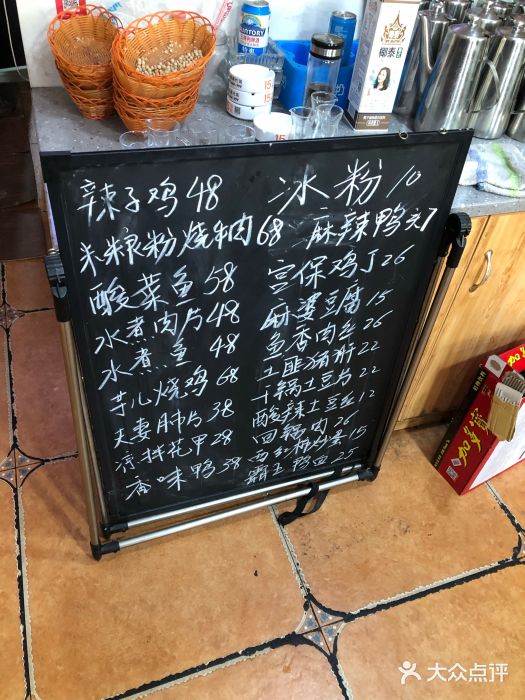 SUNTORY
椰泰
15
15
辣子鸡48
米粮粉烧肉68
酸菜鱼58
水煮肉片48
水煮鱼48
芋儿烧鸡68
夫妻肺片38
凉拌花甲28
香味鸭38
冰粉10
麻辣鸭头7
宫保鸡丁26
麻婆豆腐15
鱼香肉丝26
土匪猪肝22
干锅土豆片22
酸辣土豆丝12
回锅肉26
西红柿炒蛋15
霸王鸭血25
加多宝
大众点评